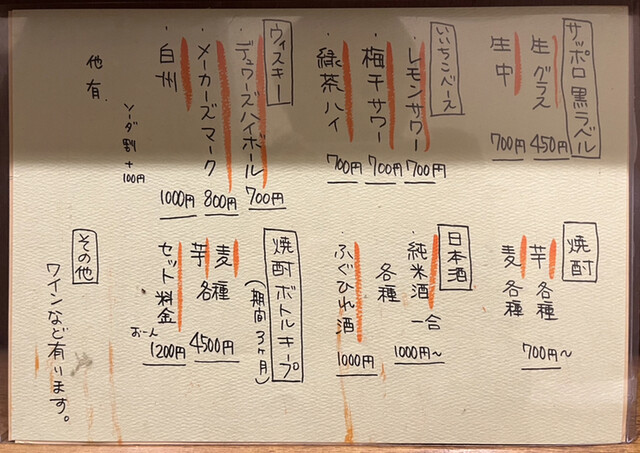 サッポロ黒ラベル
生グラス 450円
生中 700円
いいちこベース
・レモンサワー 700円
・梅干サワー 700円
・緑茶ハイ 700円
ウィスキー
・デュワーズハイボール 700円
・メーカーズマーク 800円
・白州 1000円
ソーダ割+100円
他有
焼酎
芋 各種
麦 各種
700円〜
日本酒
純米酒 一合
各種
1000円〜
・ふぐひれ酒 1000円
焼酎ボトルキープ
(期間3ヶ月)
麦 各種
芋
4500円
セット料金 お一人 1200円
その他
ワインなど有います。